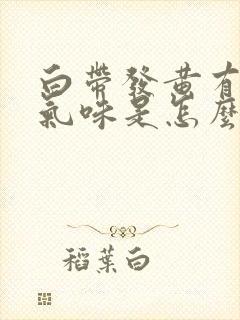 白帶發黃有
氣味是怎麼
稻葉白